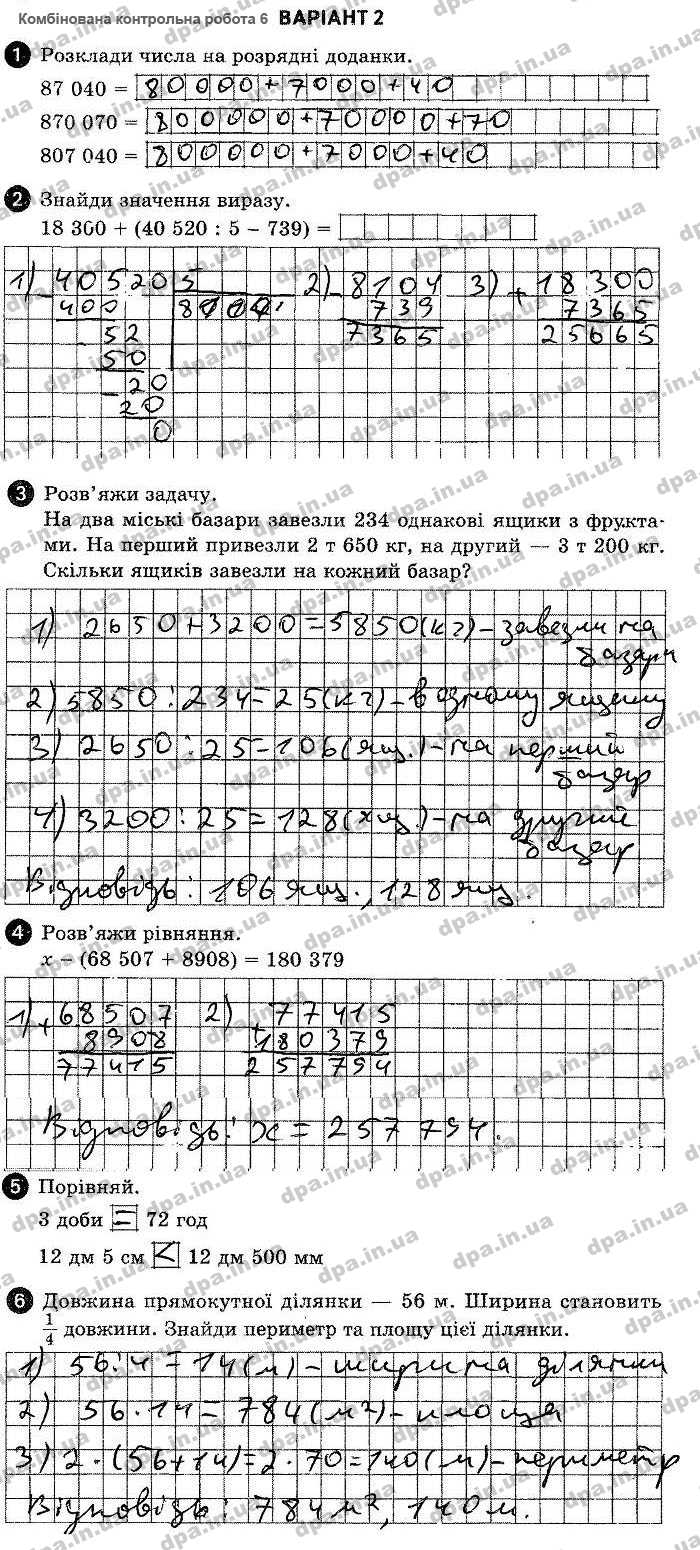 Комбінована контрольна робота 6 ВАРІАНТ 2
1 Розклади числа на розрядні доданки.
87 040 = 80000+7000+40
870 070 = 800000+70000+70
807 040 = 800000+7000+40
2 Знайди значення виразу.
18 300 + (40 520 : 5 – 739) =
1) 2) 3)
– 40520 5 – 8104 + 18300
400 8104 739 7365
52 7365 25665
50
– 20
20
0
3 Розв’яжи задачу.
На два міські базари завезли 234 однакові ящики з фрукта-
ми. На перший привезли 2 т 650 кг, на другий — 3 т 200 кг.
Скільки ящиків завезли на кожний базар?
1) 2650+3200=5850(кг)–завезли на
базари
2) 5850:234=25(кг)–в одному ящику
3) 2650:25=106(ящ.)–на перший
базар
4) 3200:25=128(ящ.)–на другий
базар
Відповідь: 106 ящ., 128 ящ.
4 Розв’яжи рівняння.
x – (68 507 + 8908) = 180 379
1) + 68507 2) + 77415
8908 180379
77415 257794
Відповідь: x = 257 794.
5 Порівняй.
3 доби = 72 год
12 дм 5 см < 12 дм 500 мм
6 Довжина прямокутної ділянки — 56 м. Ширина становить
1/4 довжини. Знайди периметр та площу цієї ділянки.
1) 56:4=14(м)–ширина ділянки
2) 56·14=784(м²)–площа
3) 2·(56+14)=2·70=140(м)–периметр
Відповідь: 784 м², 140 м.
dpa.in.ua